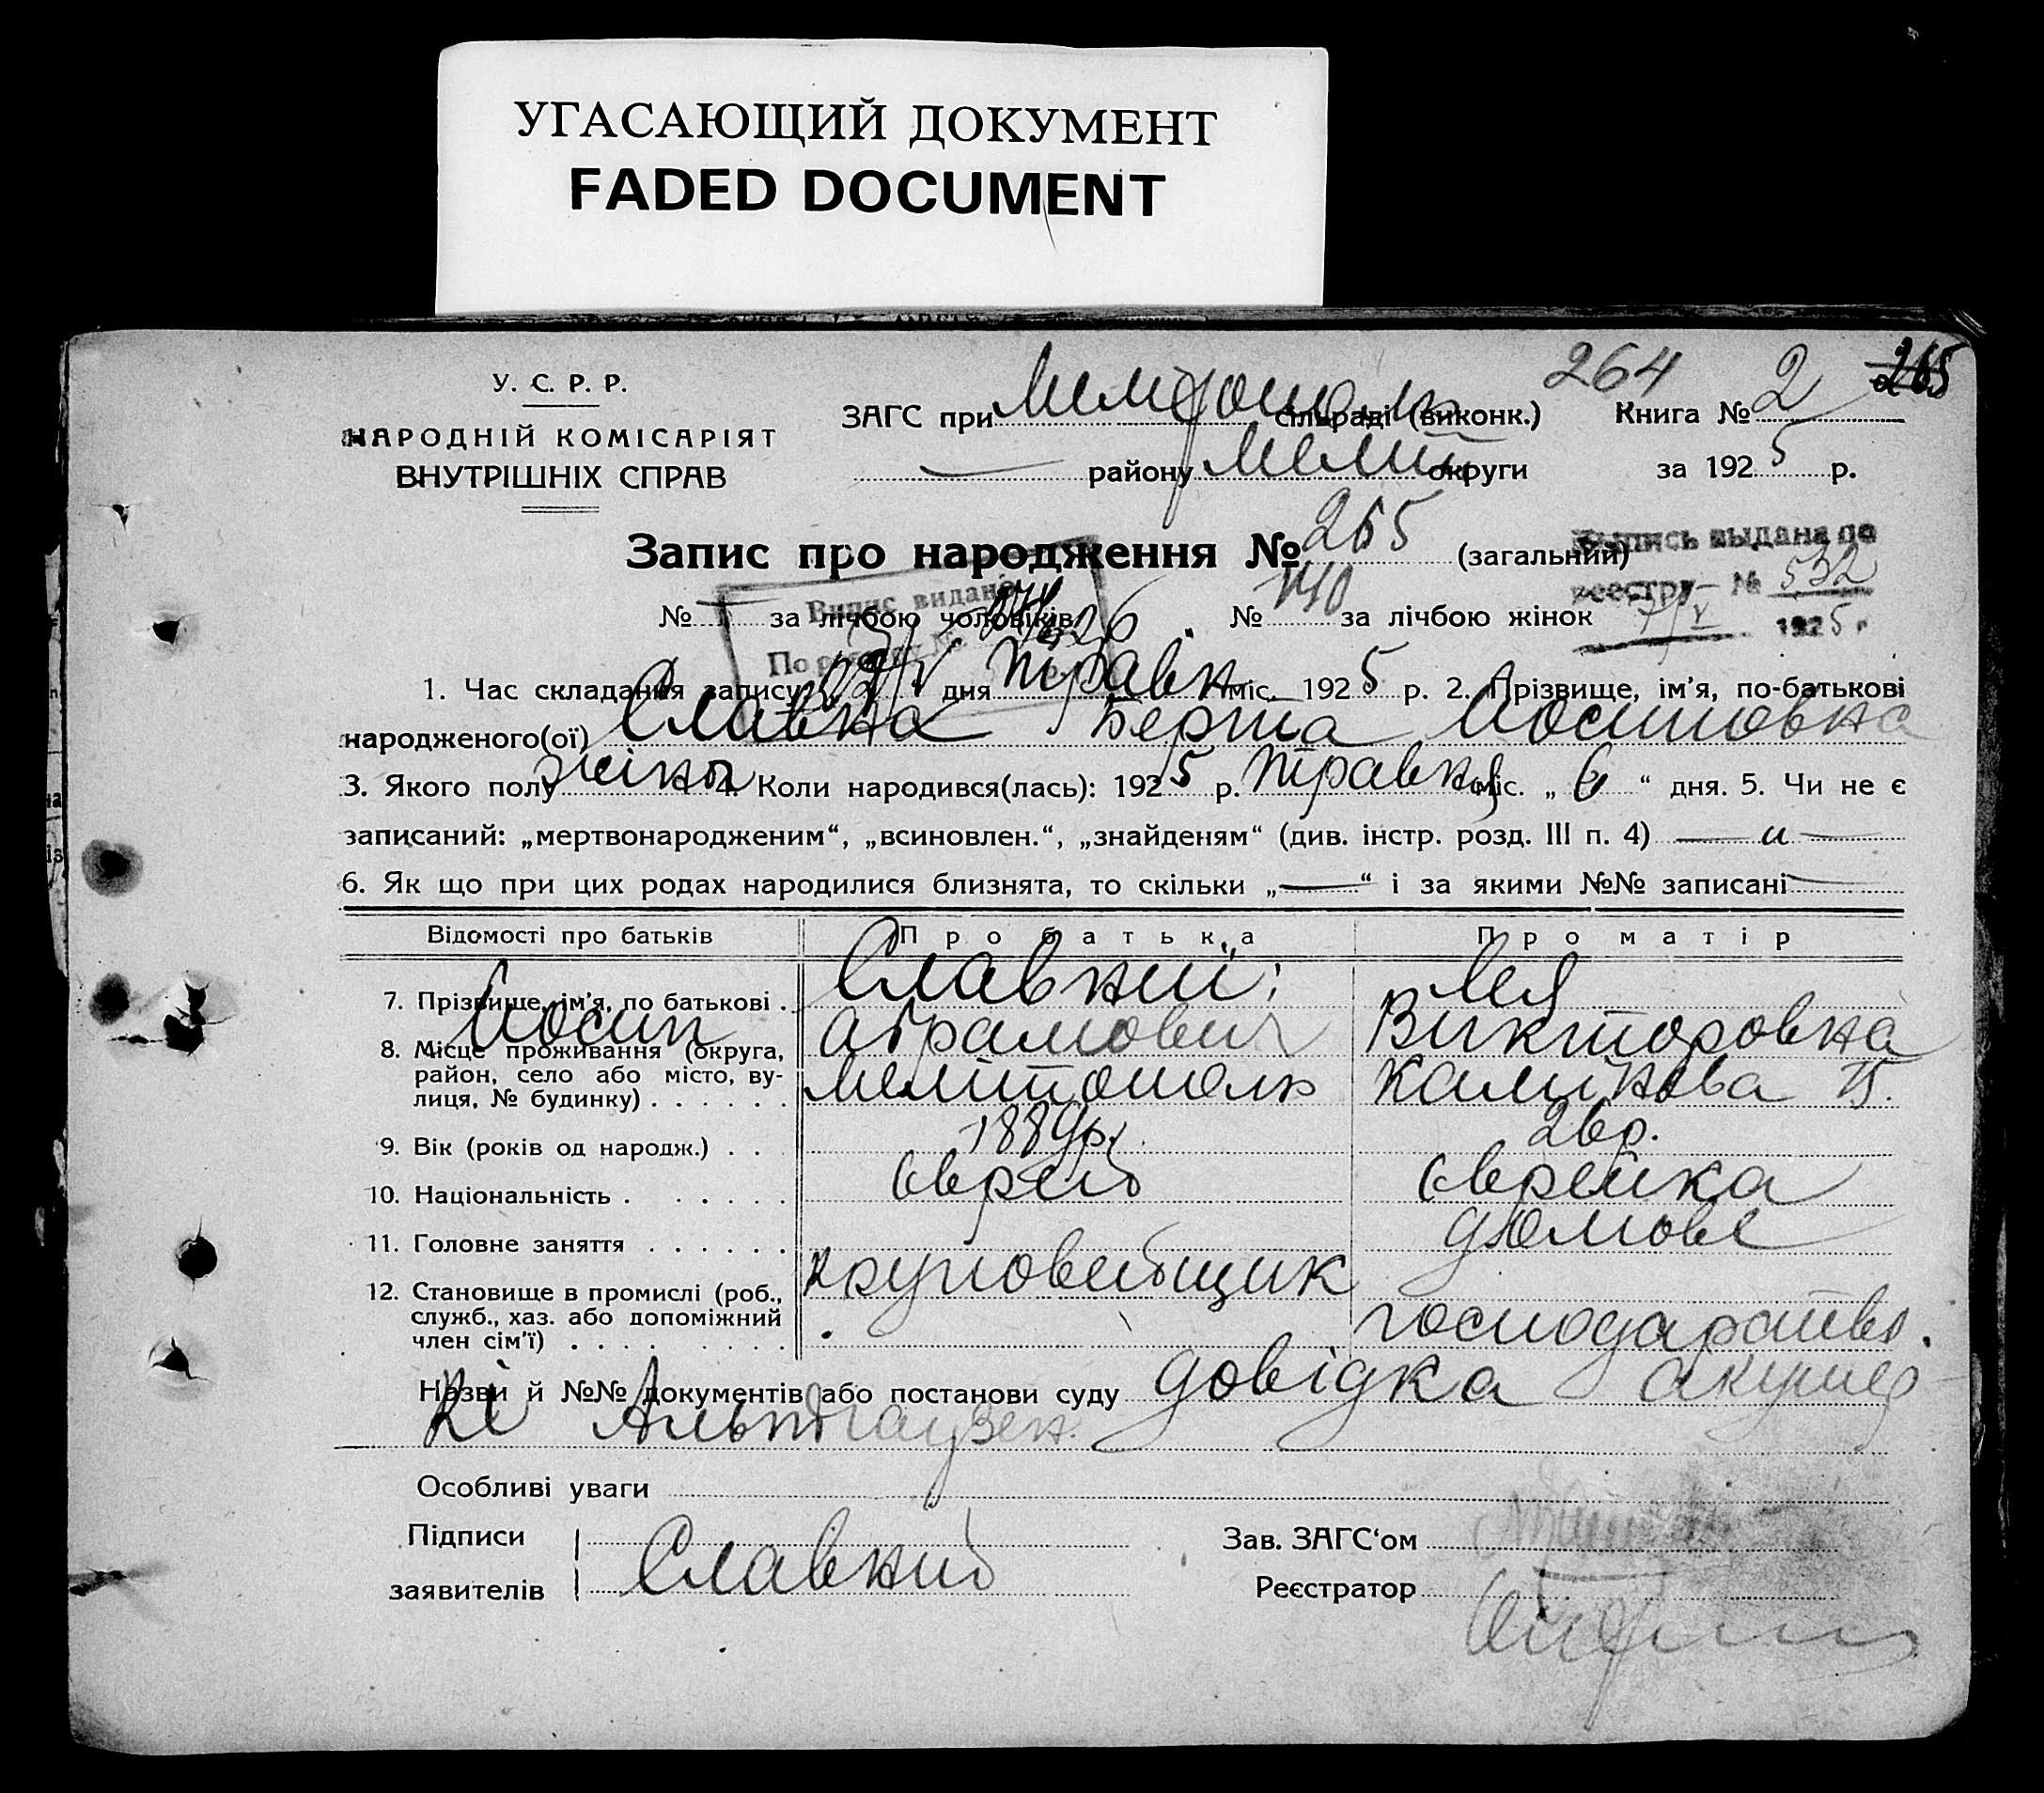 УГАСАЮЩИЙ ДОКУМЕНТ
FADED DOCUMENT
264
265
У. С. Р. Р.
НАРОДНІЙ КОМІСАРІЯТ
ВНУТРІШНІХ СПРАВ
ЗАГС при сільраді (виконк.) Книга № 2
— району Мелит округи за 1925 р.
Запис про народження № 265 (загальний)
Выпись выдана по
реестру № 532
7/V 1925 г
№ — за лічбою чоловіків № 140 за лічбою жінок
Випис видано
1. Час складання запису: дня травн міс. 1925 р. 2. Прізвище, ім'я, по-батькові
народженого(ої) Славна Берта Иосиповна
3. Якого полу жіноч 4. Коли народився(лась): 1925 р. Травня міс. „ 6 “ дня. 5. Чи не є
записаний: „мертвонародженим“, „всиновлен.“, „знайденям“ (див. інстр. розд. III п. 4) — и —
6. Як що при цих родах народилися близнята, то скільки „—“ і за якими №№ записані —
Відомості про батьків Про батька Про матір
7. Прізвище, ім'я, по батькові . Славний Лея
Иосип Абрамович Викторовна
8. Місце проживання (округа,
район, село або місто, ву-
лиця, № будинку) . . . . . . Мелітополь Калинова 15.
9. Вік (років од народж.) . . 1889р. 26р.
10. Національність . . . . . Єврей Єврейка
11. Головне заняття . . . . . . домове
12. Становище в промислі (роб.,
служб., хаз. або допоміжний
член сім'ї) . . . . . . . . господарство.
Назви й №№ документів або постанови суду довідка акушер-
кі Альтгаузен.
Особливі уваги
Підписи
заявителів Славний
Зав. ЗАГС‘ом
Реєстратор